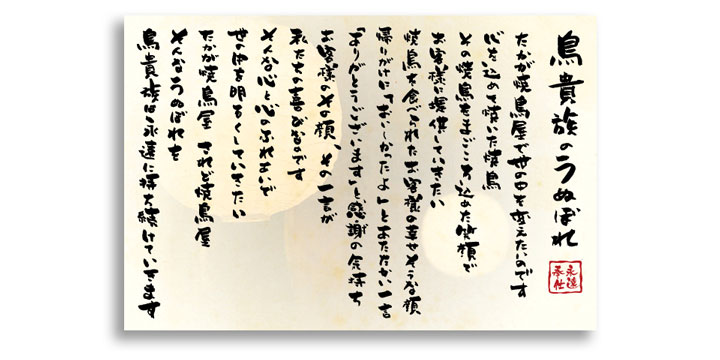 鳥貴族のうぬぼれ
永遠奉仕
たかが焼鳥屋で世の中を変えたいのです
心を込めて焼いた焼鳥
その焼鳥をまごころ込めた笑顔で
お客様に提供していきたい
焼鳥を食べられたお客様の幸せそうな顔
帰りがけに「おいしかったよ」とあたたかい一言
「ありがとうございます」と、感謝の気持ち
お客様のその顔、その一言が
私たちの喜びなのです
そんな心と心のふれあいで
世の中を明るくしていきたい
たかが焼鳥屋 されど焼鳥屋
そんなうぬぼれを
鳥貴族は永遠に持ち続けていきます